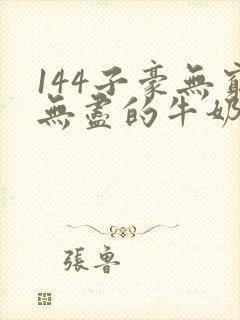 144子豪無窮
無盡的牛奶
張魯